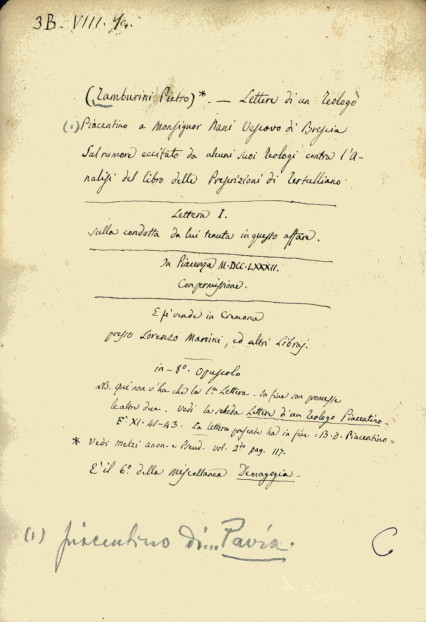 3B. VIII.
(Zamburini Pietro)*. — Lettere di un Teologo
(1) Piacentino a Monsignor Nani Vescovo di Brescia
Sul rumore eccitato da alcuni suoi Teologi contro l'A-
nalisi del libro delle Prescrizioni di Tertulliano
Lettera I.
sulla condotta da lui tenuta in questo affare.
In Piacenza M·DCC·LXXXII.
Con permissione.
E si vende in Cremona
presso Lorenzo Manini, ed altri Libraj.
in-8º. Opuscolo
NB. qui non v'ha che la 1ma Lettera. In fine son promesse
le altre due. Vedi la scheda Lettere d'un Teologo Piacentino
E' XI. 41-43. La lettera presente ha in fine =B. D. Piacentino=
* Vedi Melzi anon. e Pseud. vol. 2do pag. 117.
E' il 6º. della Miscellanea Demagogia.
(1) piacentino di... Pavia.
C